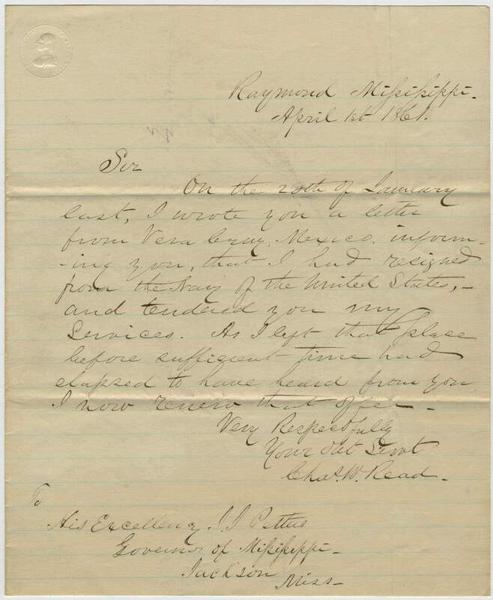 Raymond Mississippi.
April 1st 1861.
Sir
On the 20th of January
last, I wrote you a letter
from Vera Cruz, Mexico, inform-
-ing you, that I had resigned
from the Navy of the United States,
and tendered you my
services. As I left that place
before sufficient time had
elapsed to have heard from you
I now renew that offer.
Very Respectfully
Your Obt Servt
Chas. W. Read.
To
His Excellency J. J. Pettus
Governor of Mississippi
Jackson
Miss